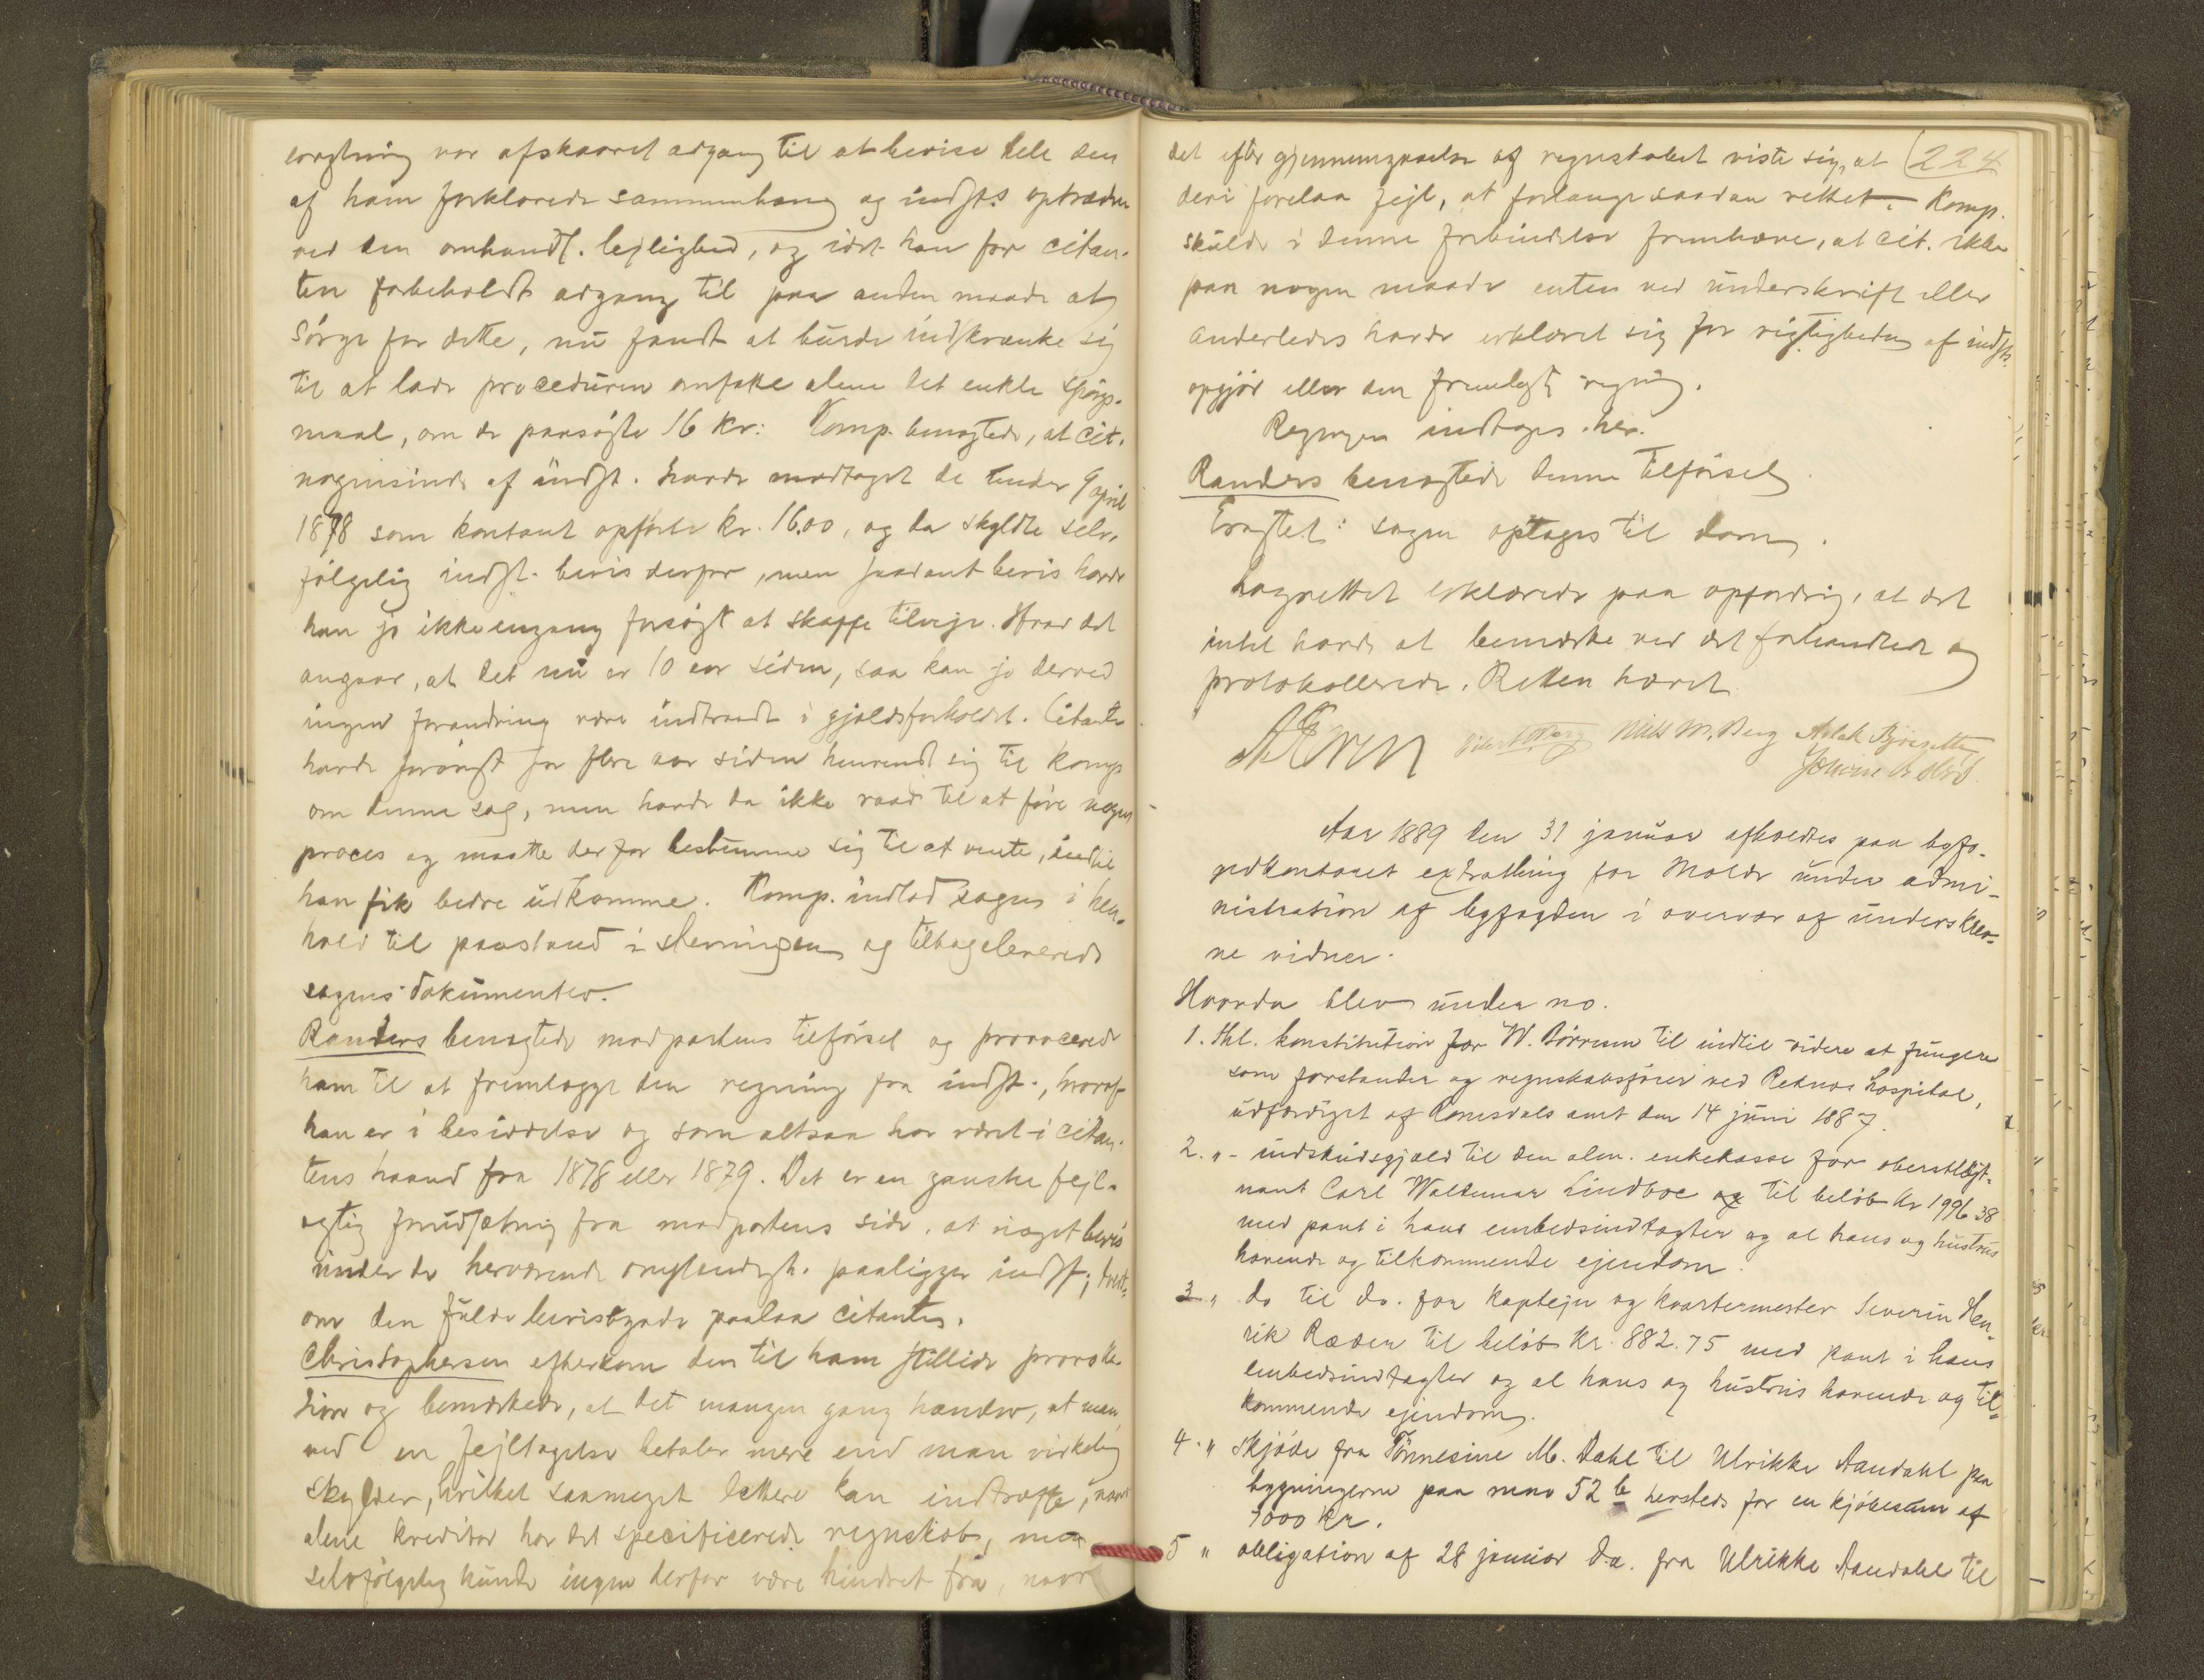 eragtning var afskaaret adgang til at bevise hele den
af ham forklarede sammenhæng og indst.s optræden
ved den omhandl. lejlighed, og idet han for citan-
ten forbeholdt adgang til paa anden maade at
sörge for dette, nu fandt at burde indskrænke sig
til at lade proceduren omfatte alene det enkle spörgs-
maal, om de paasögte 16 kr: Komp. benægtede, at cit.
nogensinde af indst. havde modtaget de under 9 april
1878 som kontant opförte kr. 16.00, og da skyldte selv-
fölgelig indst. bevis derfor, men saadant bevis havde
han jo ikke engang forsögt at skaffe tilveje. Hvad det
angaar, at det nu er 10 aar siden, saa kan jo derved
ingen forandring være indtraadt i gjældsforholdet. Citanten
havde forövrigt for flere aar siden henvendt sig til komp.
om denne sag, men havde da ikke raad til at före nogen
proces og maatte derfor bestemme sig til at vente, indtil
han fik bedre udkomme. Komp. indlod sagen i hen-
hold til paastand i stevningen og tilbageleverede
sagens dokumenter.
Randers benægtede modpartens tilförsel og provocerede
ham til at fremlægge den regning fra indst., hvoraf
han er i besiddelse og som altsaa har været i citan-
tens haand fra 1878 eller 1879. Det er en ganske fejl-
agtig forudsætning fra modpartens side, at noget bevis
under de herværende omstændigh. paaligger indst; tvert-
om den fulde bevisbyrde paalaa citanten.
Christophersen efterkom den til ham stillede provoka-
tion og bemærkede, at det mangen gang hænder, at man
ved en fejltagelse betaler mere end man virkelig
skylder, hvilket saameget lettere kan indtræffe, naar
alene kreditor har det specificerede regnskab, men
selvfölgelig kunde ingen derfor være hindret fra, naar
224
det efter gjennemgaaelse af regnskabet viste sig, at
deri forelaa fejl, at forlange saadan rettet. Komp.
skulde i denne forbindelse fremhæve, at cit. ikke
paa nogen maade enten ved underskrift eller
anderledes havde erklæret sig for rigtigheden af indst.s
opgjör eller den fremlagte regning.
Regningen indtages her.
Randers benægtede denne tilförsel.
Eragtet: sagen optages til dom.
Lagrettet erklærede paa opfordring, at det
intet havde at bemærke ved det forhandlede og
protokollerede. Retten hævet.
Nils M. Berg Aslak
Aar 1889 den 31 januar afholdtes paa byfo-
gedkontoret extrathing for Molde under admi-
nistration af byfogden i overvær af underskrev-
ne vidner.
Hvorda blev under no.
1. thl. konstitution for W. Dörrum til indtil videre at fungere
som forstander og regnskabsförer ved Reknæs hospital,
udfærdiget af Romsdals amt den 14 juni 1887.
2. " - indskudsgjæld til den alm. enkekasse for oberstlöjt-
nant Carl Waldemar Lindboe og til belöb kr 1996 38
med pant i hans embedsindtægter og al hans og hustrus
havende og tilkommende ejendom.
3 " do til do. for kaptejn og kvartermester Severin Hen-
rik Ræder til belöb kr. 882.75 med pant i hans
embedsindtægter og al hans og hustrus havende og til-
kommende ejendom.
4. " skjöde fra Tönnesine M. Dahl til Ulrikke Aandahl paa
bygningerne paa mno 52 b hersteds for en kjöbesum af
1000 kr.
5 " obligation af 28 januar d.a. fra Ulrikke Aandahl til